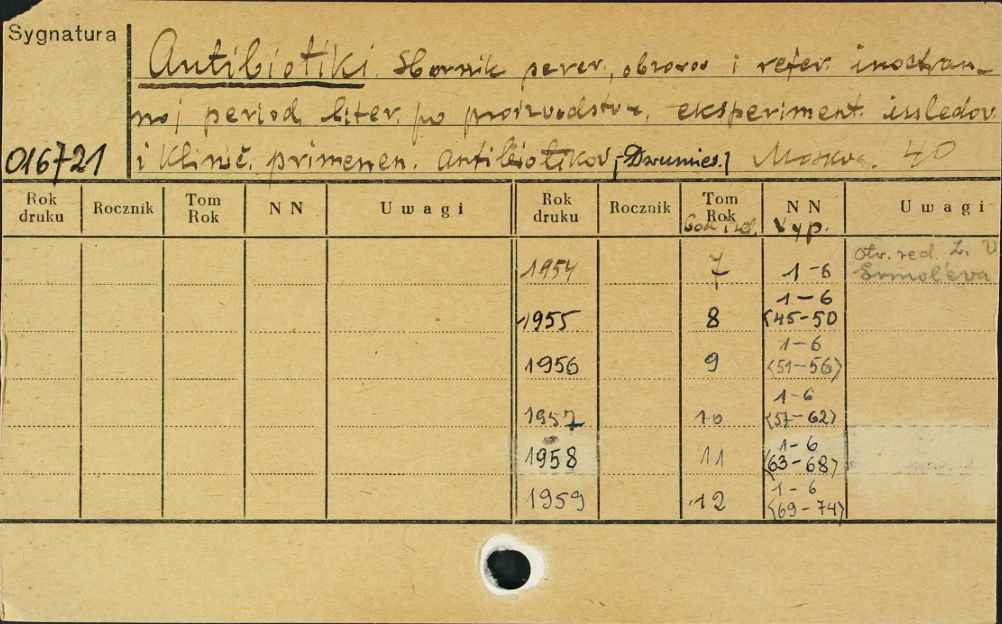 Sygnatura
Antibiotiki. Sbornik perev., obzorov i refer. inostran-
noj period. liter. po proizvodstvu, eksperiment. issledov.
016721 i klinič. primenen. antibiotikov [Dwumies.] Moskva. 40
Rok druku Rocznik Tom Rok N N Uwagi Rok druku Rocznik Tom Rok God izd. N N Vyp. Uwagi
1954 7 1-6 Otv. red. Z. V. Ermol'eva
1955 8 1-6 (45-50
1956 9 1-6 (51-56)
1957 10 1-6 (57-62)
1958 11 1-6 (63-68)
1959 12 1-6 (69-74)